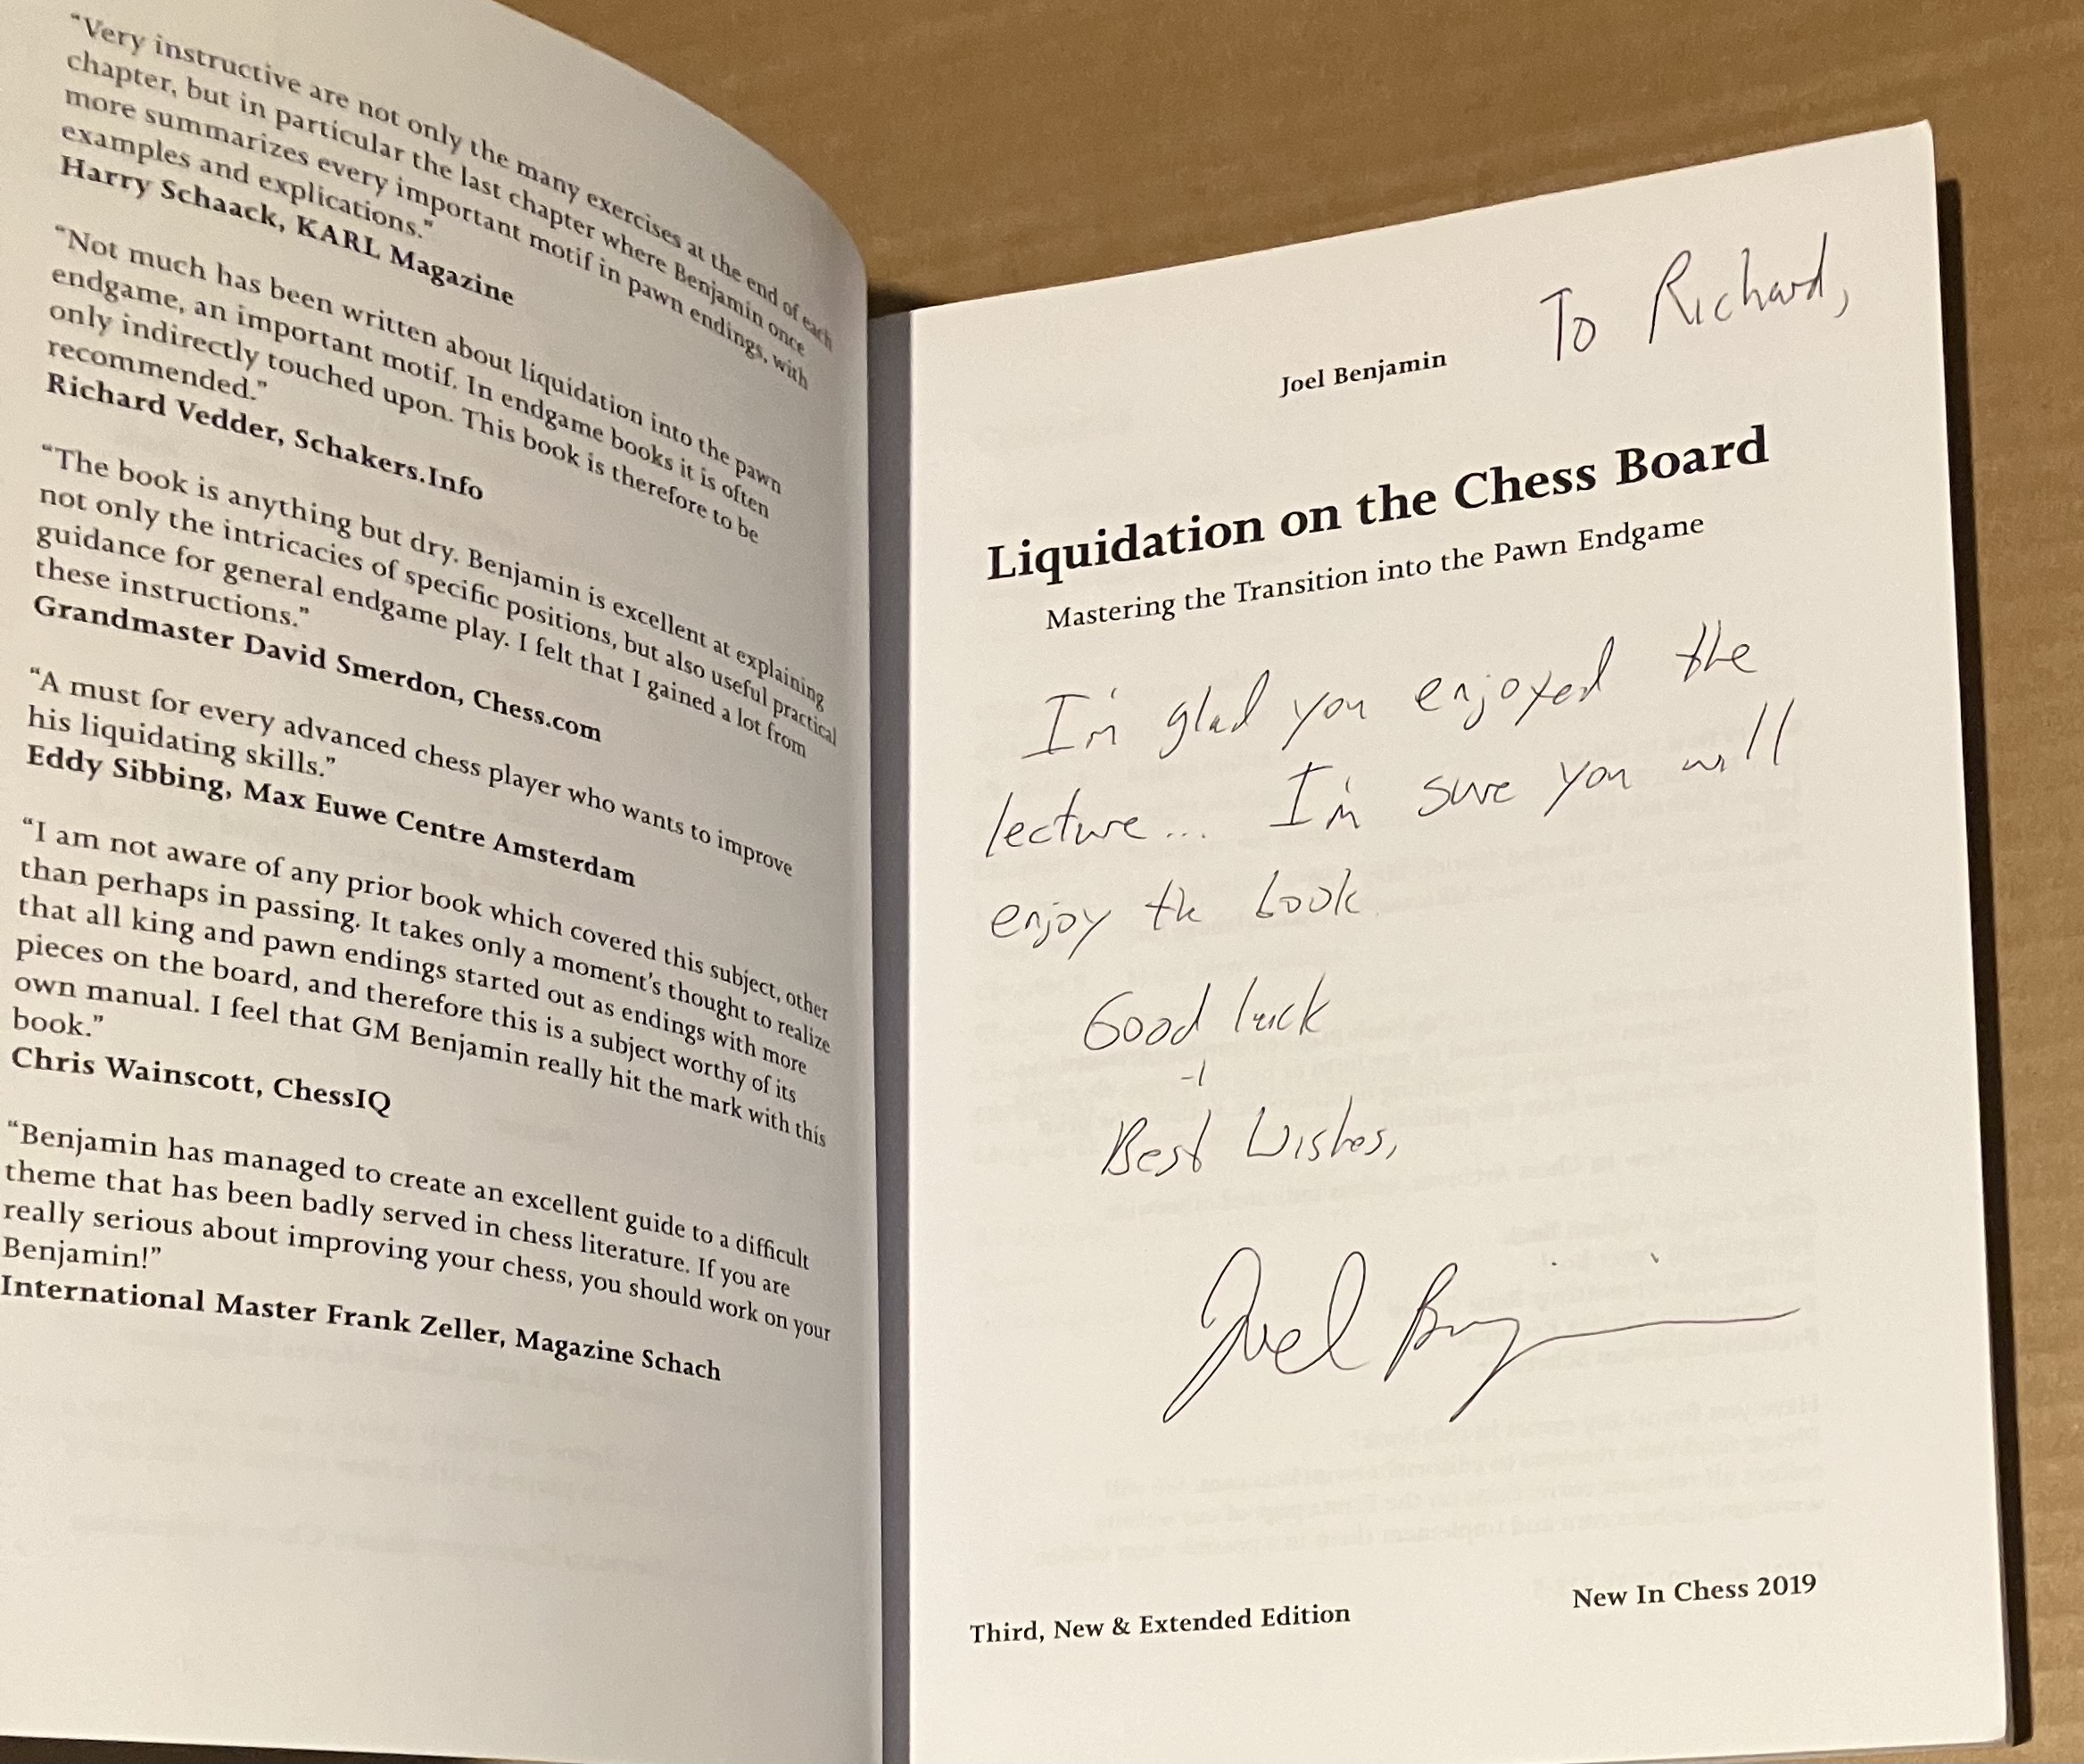 “Very instructive are not only the many exercises at the end of each
chapter, but in particular the last chapter where Benjamin once
more summarizes every important motif in pawn endings, with
examples and explications.”
Harry Schaack, KARL Magazine
“Not much has been written about liquidation into the pawn
endgame, an important motif. In endgame books it is often
only indirectly touched upon. This book is therefore to be
recommended.”
Richard Vedder, Schakers.Info
“The book is anything but dry. Benjamin is excellent at explaining
not only the intricacies of specific positions, but also useful practical
guidance for general endgame play. I felt that I gained a lot from
these instructions.”
Grandmaster David Smerdon, Chess.com
“A must for every advanced chess player who wants to improve
his liquidating skills.”
Eddy Sibbing, Max Euwe Centre Amsterdam
“I am not aware of any prior book which covered this subject, other
than perhaps in passing. It takes only a moment’s thought to realize
that all king and pawn endings started out as endings with more
pieces on the board, and therefore this is a subject worthy of its
own manual. I feel that GM Benjamin really hit the mark with this
book.”
Chris Wainscott, ChessIQ
“Benjamin has managed to create an excellent guide to a difficult
theme that has been badly served in chess literature. If you are
really serious about improving your chess, you should work on your
Benjamin!”
International Master Frank Zeller, Magazine Schach
To Richard,
Joel Benjamin
Liquidation on the Chess Board
Mastering the Transition into the Pawn Endgame
I'm glad you enjoyed the
lecture... I'm sure you will
enjoy the book.
Good luck
Best Wishes,
Joel Benjamin
Third, New & Extended Edition
New In Chess 2019